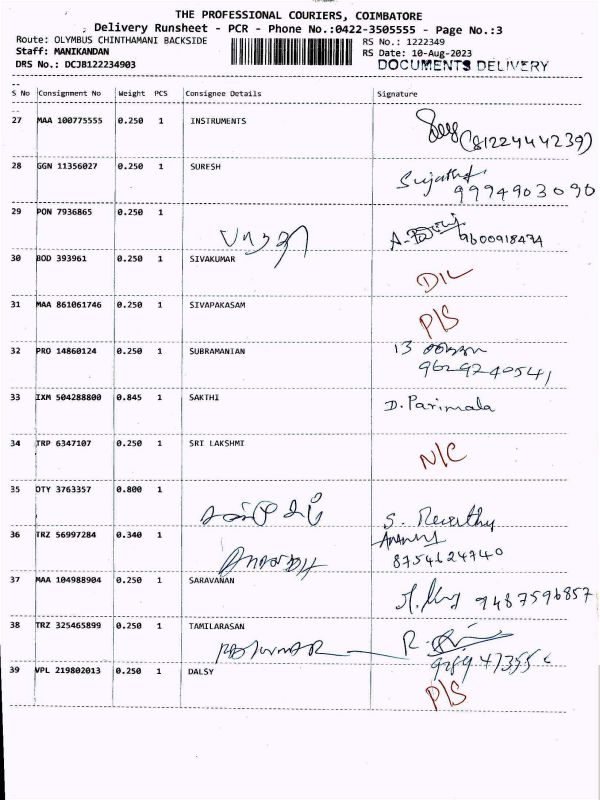 THE PROFESSIONAL COURIERS, COIMBATORE
Delivery Runsheet - PCR - Phone No.:0422-3505555 - Page No.:3
Route: OLYMBUS CHINTHAMANI BACKSIDE RS No.: 1222349
Staff: MANIKANDAN RS Date: 10-Aug-2023
DRS No.: DCJB122234903 DOCUMENTS DELIVERY
S No Consignment No Weight PCS Consignee Details Signature
27 MAA 100775555 0.250 1 INSTRUMENTS
(8122444239)
28 GGN 11356027 0.250 1 SURESH Sujatha
9994903090
29 PON 7936865 0.250 1
9600918474
30 BOD 393961 0.250 1 SIVAKUMAR
D/L
31 MAA 861061746 0.250 1 SIVAPAKASAM
P/S
32 PRO 14860124 0.250 1 SUBRAMANIAN 13
9629240541
33 IXM 504288800 0.845 1 SAKTHI D. Parimala
34 TRP 6347107 0.250 1 SRI LAKSHMI
N/C
35 OTY 3763357 0.800 1
S. Revathy
36 TRZ 56997284 0.340 1
8754624740
37 MAA 104988904 0.250 1 SARAVANAN
9487596857
38 TRZ 325465899 0.250 1 TAMILARASAN
39 VPL 219802013 0.250 1 DALSY
P/S